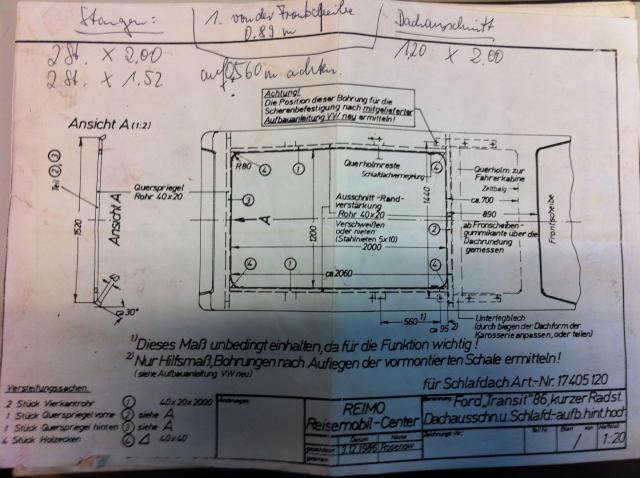 Stangen:
2 St. x 2.00
2 St. x 1.52
1. von der Frontscheibe
0.89 m
auf 0,560 m achten.
Dachausschnitt
1,20 x 2.00
Achtung!
Die Position dieser Bohrung für die
Scherenbefestigung nach mitgelieferter
Aufbauanleitung VW neu ermitteln!
Ansicht A (1:2)
Teil 2 3
1520
Ansicht A
30°
Querspriegel
Rohr 40x20
R80
4
1
3
A
1200
Querholmreste
Schlaflachverriegelung
Ausschnitt-Rand-
verstärkung
Rohr 40x20
Verschweißen
oder nieten
(Stahlnieten 5x10)
2000
ca 2060
4
1
4
1440
2
4
Querholm zur
Fahrerkabine
Zeltbalg
ca. 700
890
ab Fronscheiben-
gummikante über die
Dachrundung
gemessen
Frontscheibe
560 1)
ca 95 2)
Unterlegblech
(durch biegen der Dachform der
Karosserie anpassen, oder teilen)
1) Dieses Maß unbedingt einhalten, da für die Funktion wichtig!
2) Nur Hilfsmaß, Bohrungen nach Auflegen der vormontierten Schale ermitteln!
(siehe Aufbauanleitung VW neu)
für Schlafdach Art-Nr. 17405120
Versteifungssachen:
2 Stück Vierkantrohr 1 40x20x2000
1 Stück Querspriegel vorne 2 siehe A
1 Stück Querspriegel hinten 3 siehe A
4 Stück Holzecken 4 40x40
Änderungen:
REIMO
Reisemobil-Center
Datum Name
gezeichnet 3.12.1986
Ford „Transit" 86, kurzer Radst.
Dachausschn. u. Schlafd-aufb. hint. hoch
Zeichnungs-Nr.:
Teil Nr.
Blatt von
/
Maßstab
1:20